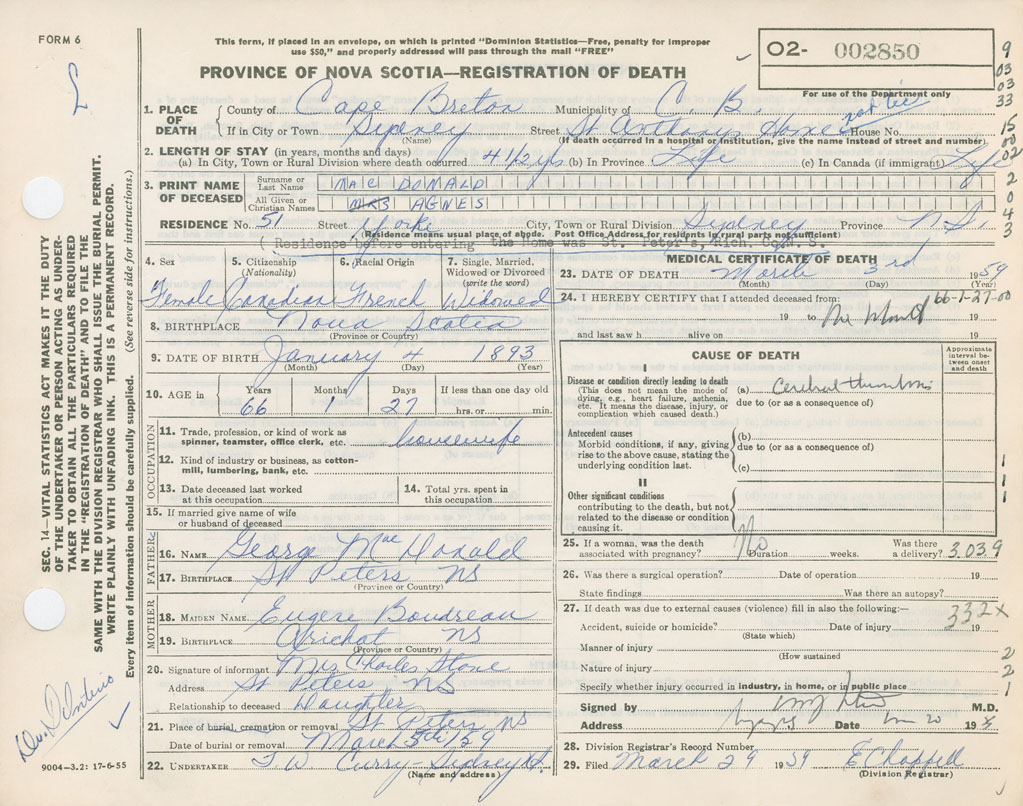 FORM 6
This form, if placed in an envelope, on which is printed "Dominion Statistics—Free, penalty for improper
use $50," and properly addressed will pass through the mail "FREE"
O2- 002850
For use of the Department only
PROVINCE OF NOVA SCOTIA—REGISTRATION OF DEATH
9
03
03
33
15
00
02
2
0
4
3
1. PLACE OF DEATH
County of Cape Breton Municipality of C. B.
If in City or Town Sydney Street St Anthonys Home House No.
(Name) (If death occurred in a hospital or institution, give the name instead of street and number)
2. LENGTH OF STAY (in years, months and days)
(a) In City, Town or Rural Division where death occurred 4 1/2 yrs (b) In Province Life (c) In Canada (if immigrant) Life
3. PRINT NAME OF DECEASED
Surname or Last Name MAC DONALD
All Given or Christian Names MRS AGNES
RESIDENCE No. 51 Street Yorke City, Town or Rural Division Sydney Province N.S.
(Residence means usual place of abode. Post Office Address for residents in rural parts not sufficient)
( Residence before entering the Home was St. Peter's, Rich. Co. N. S.
4. Sex Female
5. Citizenship (Nationality) Canadian
6. Racial Origin French
7. Single, Married, Widowed or Divorced (write the word) Widowed
8. BIRTHPLACE Nova Scotia
(Province or Country)
9. DATE OF BIRTH January 4 1893
(Month) (Day) (Year)
10. AGE in Years 66 Months 1 Days 27 If less than one day old hrs. or min.
OCCUPATION
11. Trade, profession, or kind of work as spinner, teamster, office clerk, etc. housewife
12. Kind of industry or business, as cotton-mill, lumbering, bank, etc.
13. Date deceased last worked at this occupation
14. Total yrs. spent in this occupation
15. If married give name of wife or husband of deceased
FATHER
16. NAME George MacDonald
17. BIRTHPLACE St Peters NS
(Province or Country)
MOTHER
18. MAIDEN NAME Eugene Boudreau
19. BIRTHPLACE Arichat NS
(Province or Country)
20. Signature of informant Mrs Charles Stone
Address St Peters NS
Relationship to deceased Daughter
21. Place of burial, cremation or removal St Peters NS
Date of burial or removal March 5th 59
22. UNDERTAKER T W Curry - Sydney
(Name and address)
MEDICAL CERTIFICATE OF DEATH
23. DATE OF DEATH March 3rd 1959
(Month) (Day) (Year)
24. I HEREBY CERTIFY that I attended deceased from: 66-1-27-00
19 to 19
and last saw h alive on 19
CAUSE OF DEATH
Approximate interval between onset and death
I
Disease or condition directly leading to death
(This does not mean the mode of dying, e.g., heart failure, asthenia, etc. It means the disease, injury, or complication which caused death.)
(a) Cerebral thrombosis
due to (or as a consequence of)
Antecedent causes
Morbid conditions, if any, giving rise to the above cause, stating the underlying condition last.
(b)
due to (or as a consequence of)
(c)
II
Other significant conditions
contributing to the death, but not related to the disease or condition causing it.
1
1
1
25. If a woman, was the death associated with pregnancy? No Duration weeks. Was there a delivery? 3.039
26. Was there a surgical operation? Date of operation 19
State findings Was there an autopsy?
27. If death was due to external causes (violence) fill in also the following:— 332x
Accident, suicide or homicide? Date of injury 19
(State which)
Manner of injury 2
(How sustained
Nature of injury 2
Specify whether injury occurred in industry, in home, or in public place 1
Signed by M.D.
Address Date 19
28. Division Registrar's Record Number
29. Filed March 29 1959 E Chappell
(Division Registrar)
SEC. 14—VITAL STATISTICS ACT MAKES IT THE DUTY
OF THE UNDERTAKER OR PERSON ACTING AS UNDER-
TAKER TO OBTAIN ALL THE PARTICULARS REQUIRED
IN THE "REGISTRATION OF DEATH" AND TO FILE THE
SAME WITH THE DIVISION REGISTRAR WHO SHALL ISSUE THE BURIAL PERMIT.
WRITE PLAINLY WITH UNFADING INK. THIS IS A PERMANENT RECORD.
Every item of information should be carefully supplied. (See reverse side for instructions.)
9004-3.2: 17-6-55